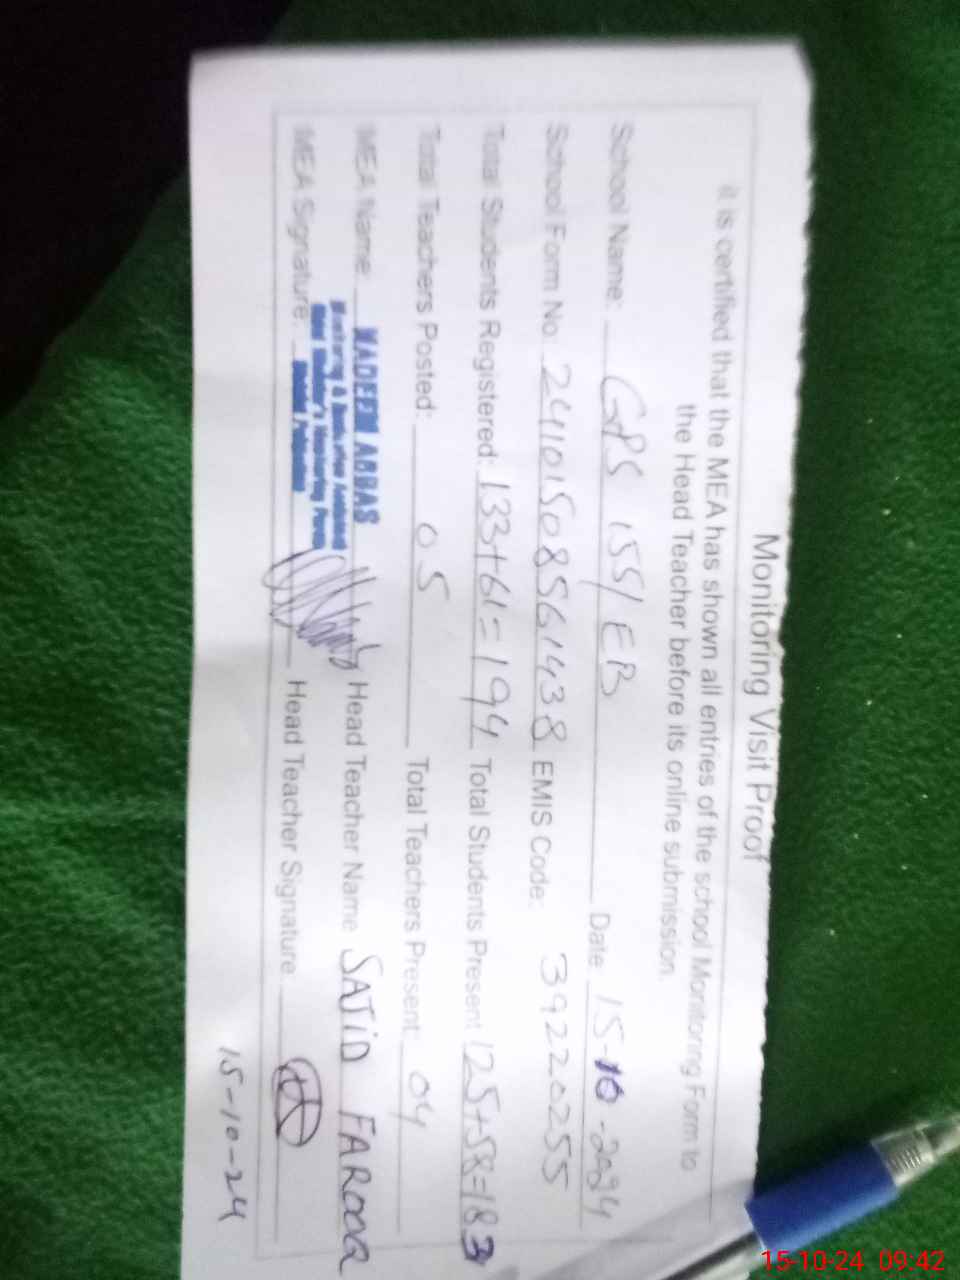 Monitoring Visit Proof
it is certified that the MEA has shown all entries of the school Monitoring Form to
the Head Teacher before its online submission
School Name: GPS 155/EB Date: 15-10-2024
School Form No. 24101508561438 EMIS Code: 39220255
Total Students Registered: 133+61=194 Total Students Present 125+58=183
Total Teachers Posted: 05 Total Teachers Present: 04
MEA Name: ABBAS Head Teacher Name SAJiD FAROOQ
MEA Signature: Head Teacher Signature
15-10-24
15-10-24 09:42